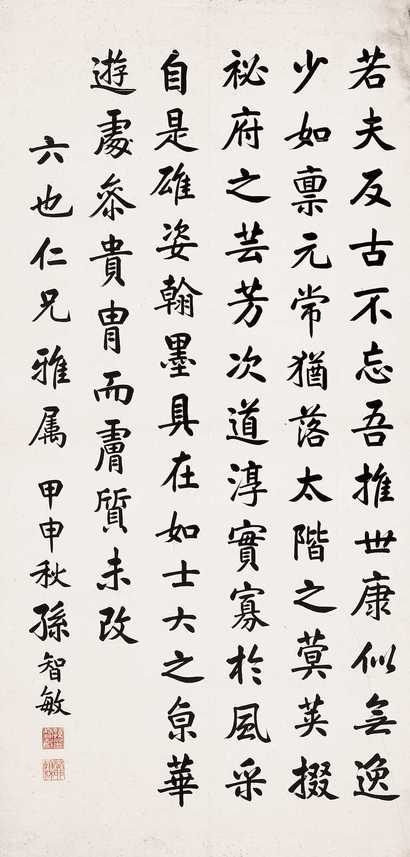 若夫反古不忘吾推世康似無逸
少如禀元常猶落太階之蓂莢掇
祕府之芸芳次道淳實寡於風采
自是雄姿翰墨具在如士大之京華
遊處參貴胄而膚質未改
六也仁兄雅属 甲申秋 孫智敏